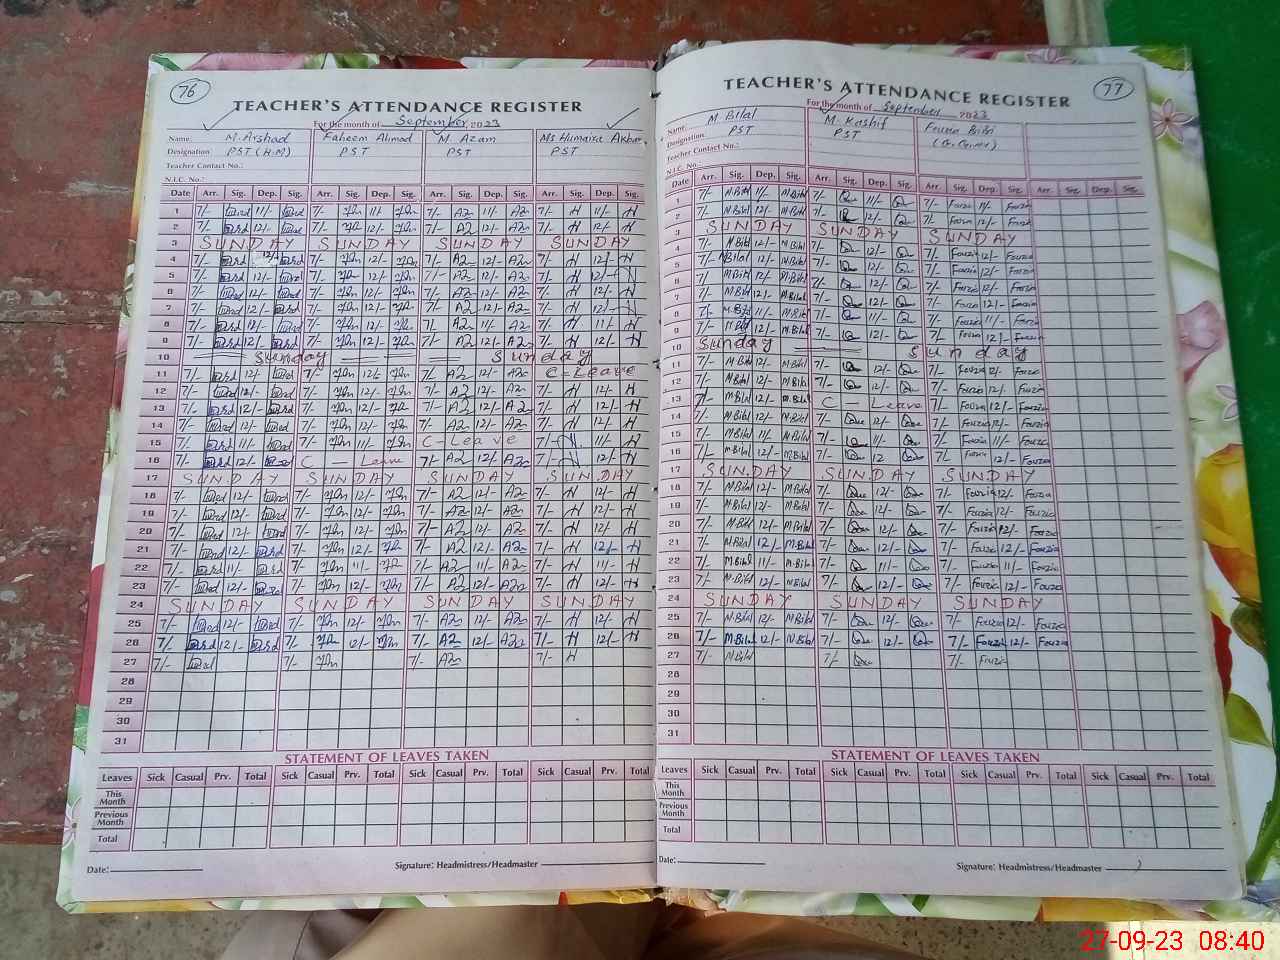 76
TEACHER'S ATTENDANCE REGISTER
For the month of September 2023
Name: M. Arshad Faheem Ahmad M. Azam Ms Humaira Akhtar
Designation: PST (H.M) PST PST PST
Teacher Contact No.:
N.I.C. No.:
Date Arr. Sig. Dep. Sig. Arr. Sig. Dep. Sig. Arr. Sig. Dep. Sig. Arr. Sig. Dep. Sig.
1 7/- 11/- 7/- 11/- 7/- Az 11/- Az 7/- H 11/- H
2 7/- 12/- 7/- 12/- 7/- Az 12/- Az 7/- H 12/- H
3 SUNDAY SUNDAY SUNDAY SUNDAY
4 7/- 12/- 7/- 12/- 7/- Az 12/- Az 7/- H 12/- H
5 7/- 12/- 7/- 12/- 7/- Az 12/- Az 7/- H 12/-
6 7/- 12/- 7/- 12/- 7/- Az 12/- Az 7/- H 12/-
7 7/- 12/- 7/- 12/- 7/- Az 12/- Az 7/- H 12/-
8 7/- 12/- 7/- 12/- 7/- Az 11/- Az 7/- H 11/- H
9 7/- 12/- 7/- 12/- 7/- Az 12/- Az 7/- H 12/- H
10 Sunday Sunday
11 7/- 12/- 7/- 12/- 7/- Az 12/- Az C-Leave
12 7/- 12/- 7/- 12/- 7/- Az 12/- Az 7/- H 12/- H
13 7/- 12/- 7/- 12/- 7/- Az 12/- Az 7/- H 12/- H
14 7/- 12/- 7/- 12/- 7/- Az 12/- Az 7/- H 12/- H
15 7/- 11/- 7/- 11/- C-Leave 7/- 11/- H
16 7/- 12/- C - Leave 7/- Az 12/- Az 7/- 12/- H
17 SUNDAY SUNDAY SUNDAY SUNDAY
18 7/- 12/- 7/- 12/- 7/- Az 12/- Az 7/- H 12/- H
19 7/- 12/- 7/- 12/- 7/- Az 12/- Az 7/- H 12/- H
20 7/- 12/- 7/- 12/- 7/- Az 12/- Az 7/- H 12/- H
21 7/- 12/- 7/- 12/- 7/- Az 12/- Az 7/- H 12/- H
22 7/- 11/- 7/- 11/- 7/- Az 11/- Az 7/- H 11/- H
23 7/- 12/- 7/- 12/- 7/- Az 12/- Az 7/- H 12/- H
24 SUNDAY SUNDAY SUNDAY SUNDAY
25 7/- 12/- 7/- 12/- 7/- Az 12/- Az 7/- H 12/- H
26 7/- 12/- 7/- 12/- 7/- Az 12/- Az 7/- H 12/- H
27 7/- 7/- 7/- Az 7/- H
28
29
30
31
STATEMENT OF LEAVES TAKEN
Leaves Sick Casual Prv. Total Sick Casual Prv. Total Sick Casual Prv. Total Sick Casual Prv. Total
This Month
Previous Month
Total
Date: Signature: Headmistress/Headmaster
77
TEACHER'S ATTENDANCE REGISTER
For the month of September 2023
Name: M Bilal M. Kashif Fouzia Bibi
Designation: PST PST
Teacher Contact No.:
N.I.C. No.:
Date Arr. Sig. Dep. Sig. Arr. Sig. Dep. Sig. Arr. Sig. Dep. Sig. Arr. Sig. Dep. Sig.
1 7/- M.Bilal 11/- M.Bilal 7/- 11/- 7/- Fouzia 11/- Fouzia
2 7/- M.Bilal 12/- M.Bilal 7/- 12/- 7/- Fouzia 12/- Fouzia
3 SUNDAY SUNDAY SUNDAY
4 7/- M.Bilal 12/- M.Bilal 7/- 12/- 7/- Fouzia 12/- Fouzia
5 7/- M.Bilal 12/- M.Bilal 7/- 12/- 7/- Fouzia 12/- Fouzia
6 7/- M.Bilal 12/- M.Bilal 7/- 12/- 7/- Fouzia 12/- Fouzia
7 7/- M.Bilal 12/- M.Bilal 7/- 12/- 7/- Fouzia 12/- Fouzia
8 7/- M.Bilal 11/- M.Bilal 7/- 11/- 7/- Fouzia 11/- Fouzia
9 7/- M.Bilal 12/- M.Bilal 7/- 12/- 7/- Fouzia 12/- Fouzia
10 Sunday Sunday
11 7/- M.Bilal 12/- M.Bilal 7/- 12/- 7/- Fouzia 12/- Fouzia
12 7/- M.Bilal 12/- M.Bilal 7/- 12/- 7/- Fouzia 12/- Fouzia
13 7/- M.Bilal 12/- M.Bilal C - Leave 7/- Fouzia 12/- Fouzia
14 7/- M.Bilal 12/- M.Bilal 7/- 12/- 7/- Fouzia 12/- Fouzia
15 7/- M.Bilal 11/- M.Bilal 7/- 11/- 7/- Fouzia 11/- Fouzia
16 7/- M.Bilal 12/- M.Bilal 7/- 12 7/- Fouzia 12/- Fouzia
17 SUNDAY SUNDAY SUNDAY
18 7/- M.Bilal 12/- M.Bilal 7/- 12/- 7/- Fouzia 12/- Fouzia
19 7/- M.Bilal 12/- M.Bilal 7/- 12/- 7/- Fouzia 12/- Fouzia
20 7/- M.Bilal 12/- M.Bilal 7/- 12/- 7/- Fouzia 12/- Fouzia
21 7/- M.Bilal 12/- M.Bilal 7/- 12/- 7/- Fouzia 12/- Fouzia
22 7/- M.Bilal 11/- M.Bilal 7/- 11/- 7/- Fouzia 11/- Fouzia
23 7/- M.Bilal 12/- M.Bilal 7/- 12/- 7/- Fouzia 12/- Fouzia
24 SUNDAY SUNDAY SUNDAY
25 7/- M.Bilal 12/- M.Bilal 7/- 12/- 7/- Fouzia 12/- Fouzia
26 7/- M.Bilal 12/- M.Bilal 7/- 12/- 7/- Fouzia 12/- Fouzia
27 7/- M.Bilal 7/- 7/- Fouzia
28
29
30
31
STATEMENT OF LEAVES TAKEN
Leaves Sick Casual Prv. Total Sick Casual Prv. Total Sick Casual Prv. Total Sick Casual Prv. Total
This Month
Previous Month
Total
Date: Signature: Headmistress/Headmaster
27-09-23 08:40